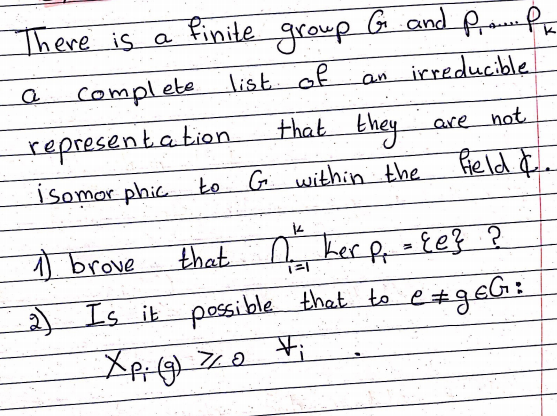 There is a finite group G and ρ₁..... ρₖ
a complete list of an irreducible
representation that they are not
isomorphic to G within the field ₵.
1) brove that ⋂ᵢ₌₁ᵏ ker ρᵢ = {e} ?
2) Is it possible that to e ≠ g ∈ G:
χρᵢ(g) ≥ 0 ∀i .